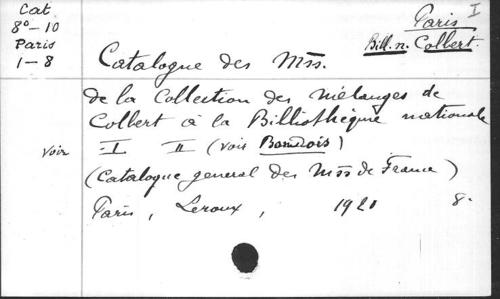 Cat
8° - 10
Paris
1 - 8
Paris I
Bill. n. Colbert.
Catalogue des Mss.
de la Collection des Mélanges de
Colbert à la Billiothèque nationale
voir I II (voir)
(Catalogue general des Mss de France)
Paris, Leroux, 1920 8.